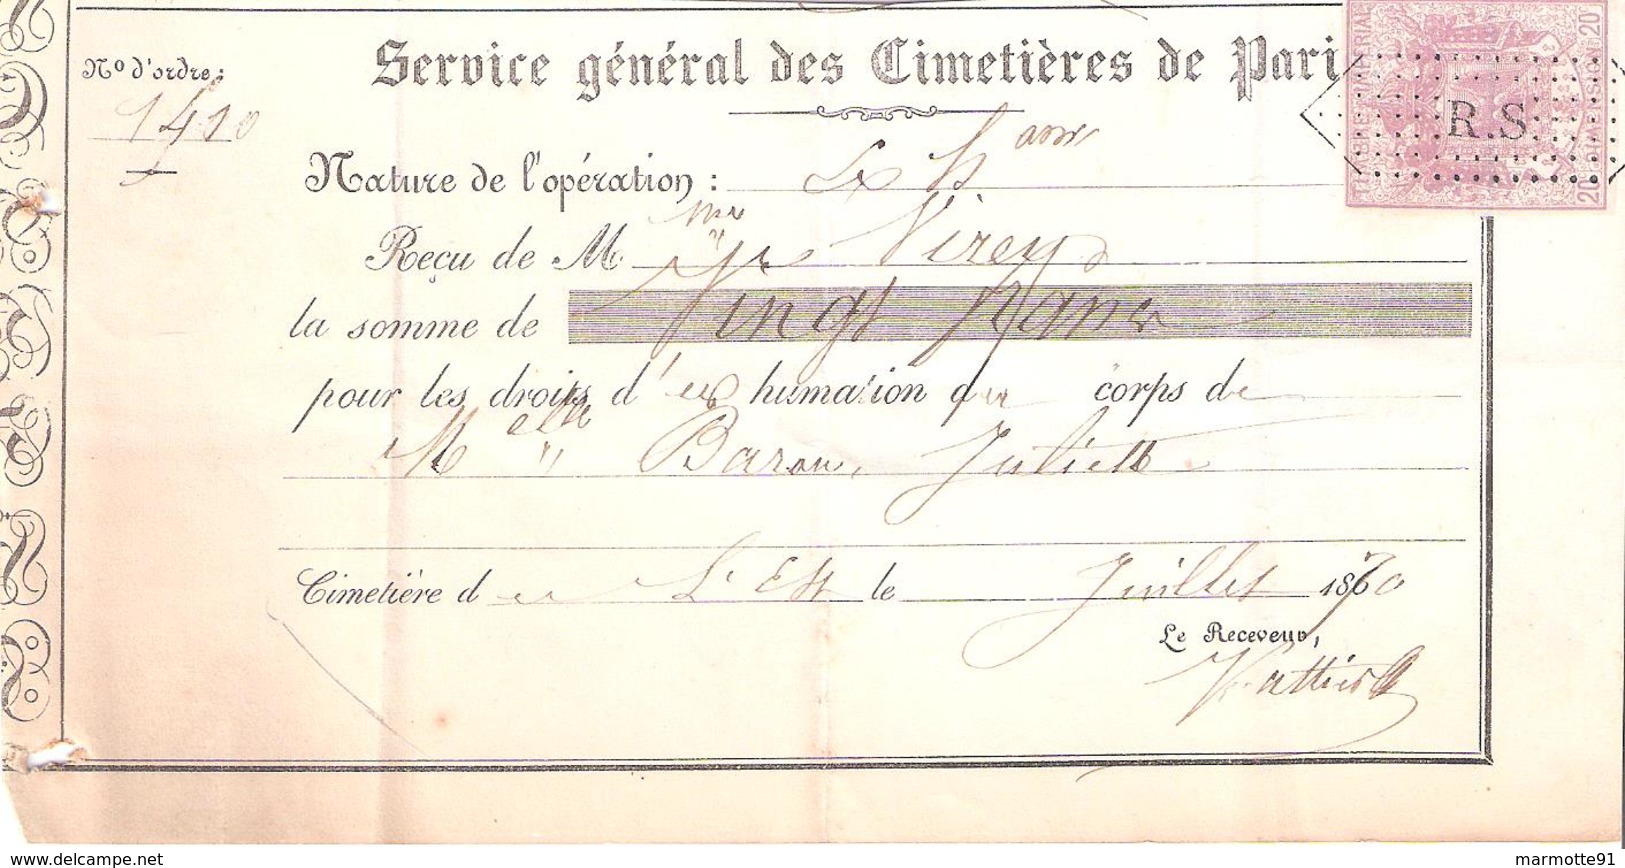 Service général des Cimetières de Pari
Nº d'ordre:
1410
20
TIMBRE IMPÉRIAL
R.S
20
Nature de l'opération: Ex h
Reçu de M me Virey
la somme de Vingt francs
pour les droits d'ex humation du corps de
M elle Baron, Juliette
Cimetière de L'Est le Juillet 1870
Le Receveur,
www.delcampe.net
marmotte91